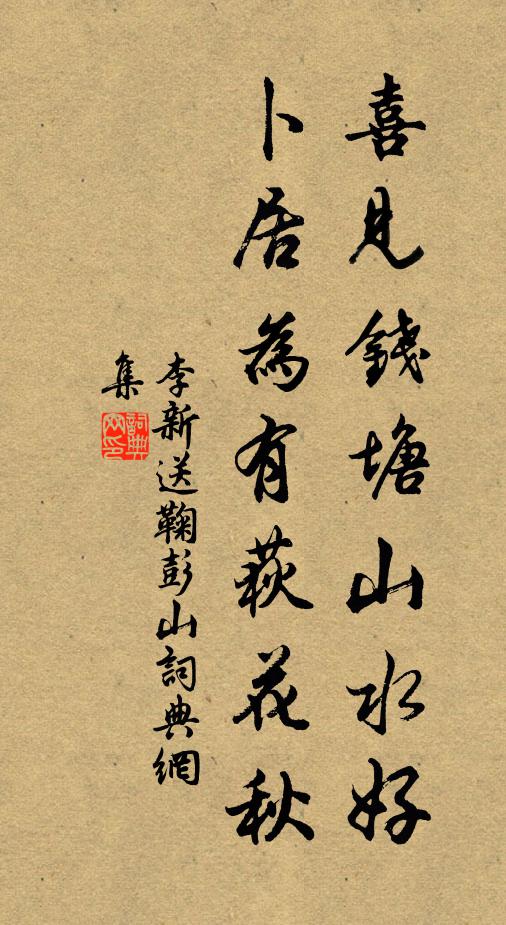 喜見錢塘山水好
卜居為有荻花秋
李新送鞠彭山詞典網
集
詞典網印